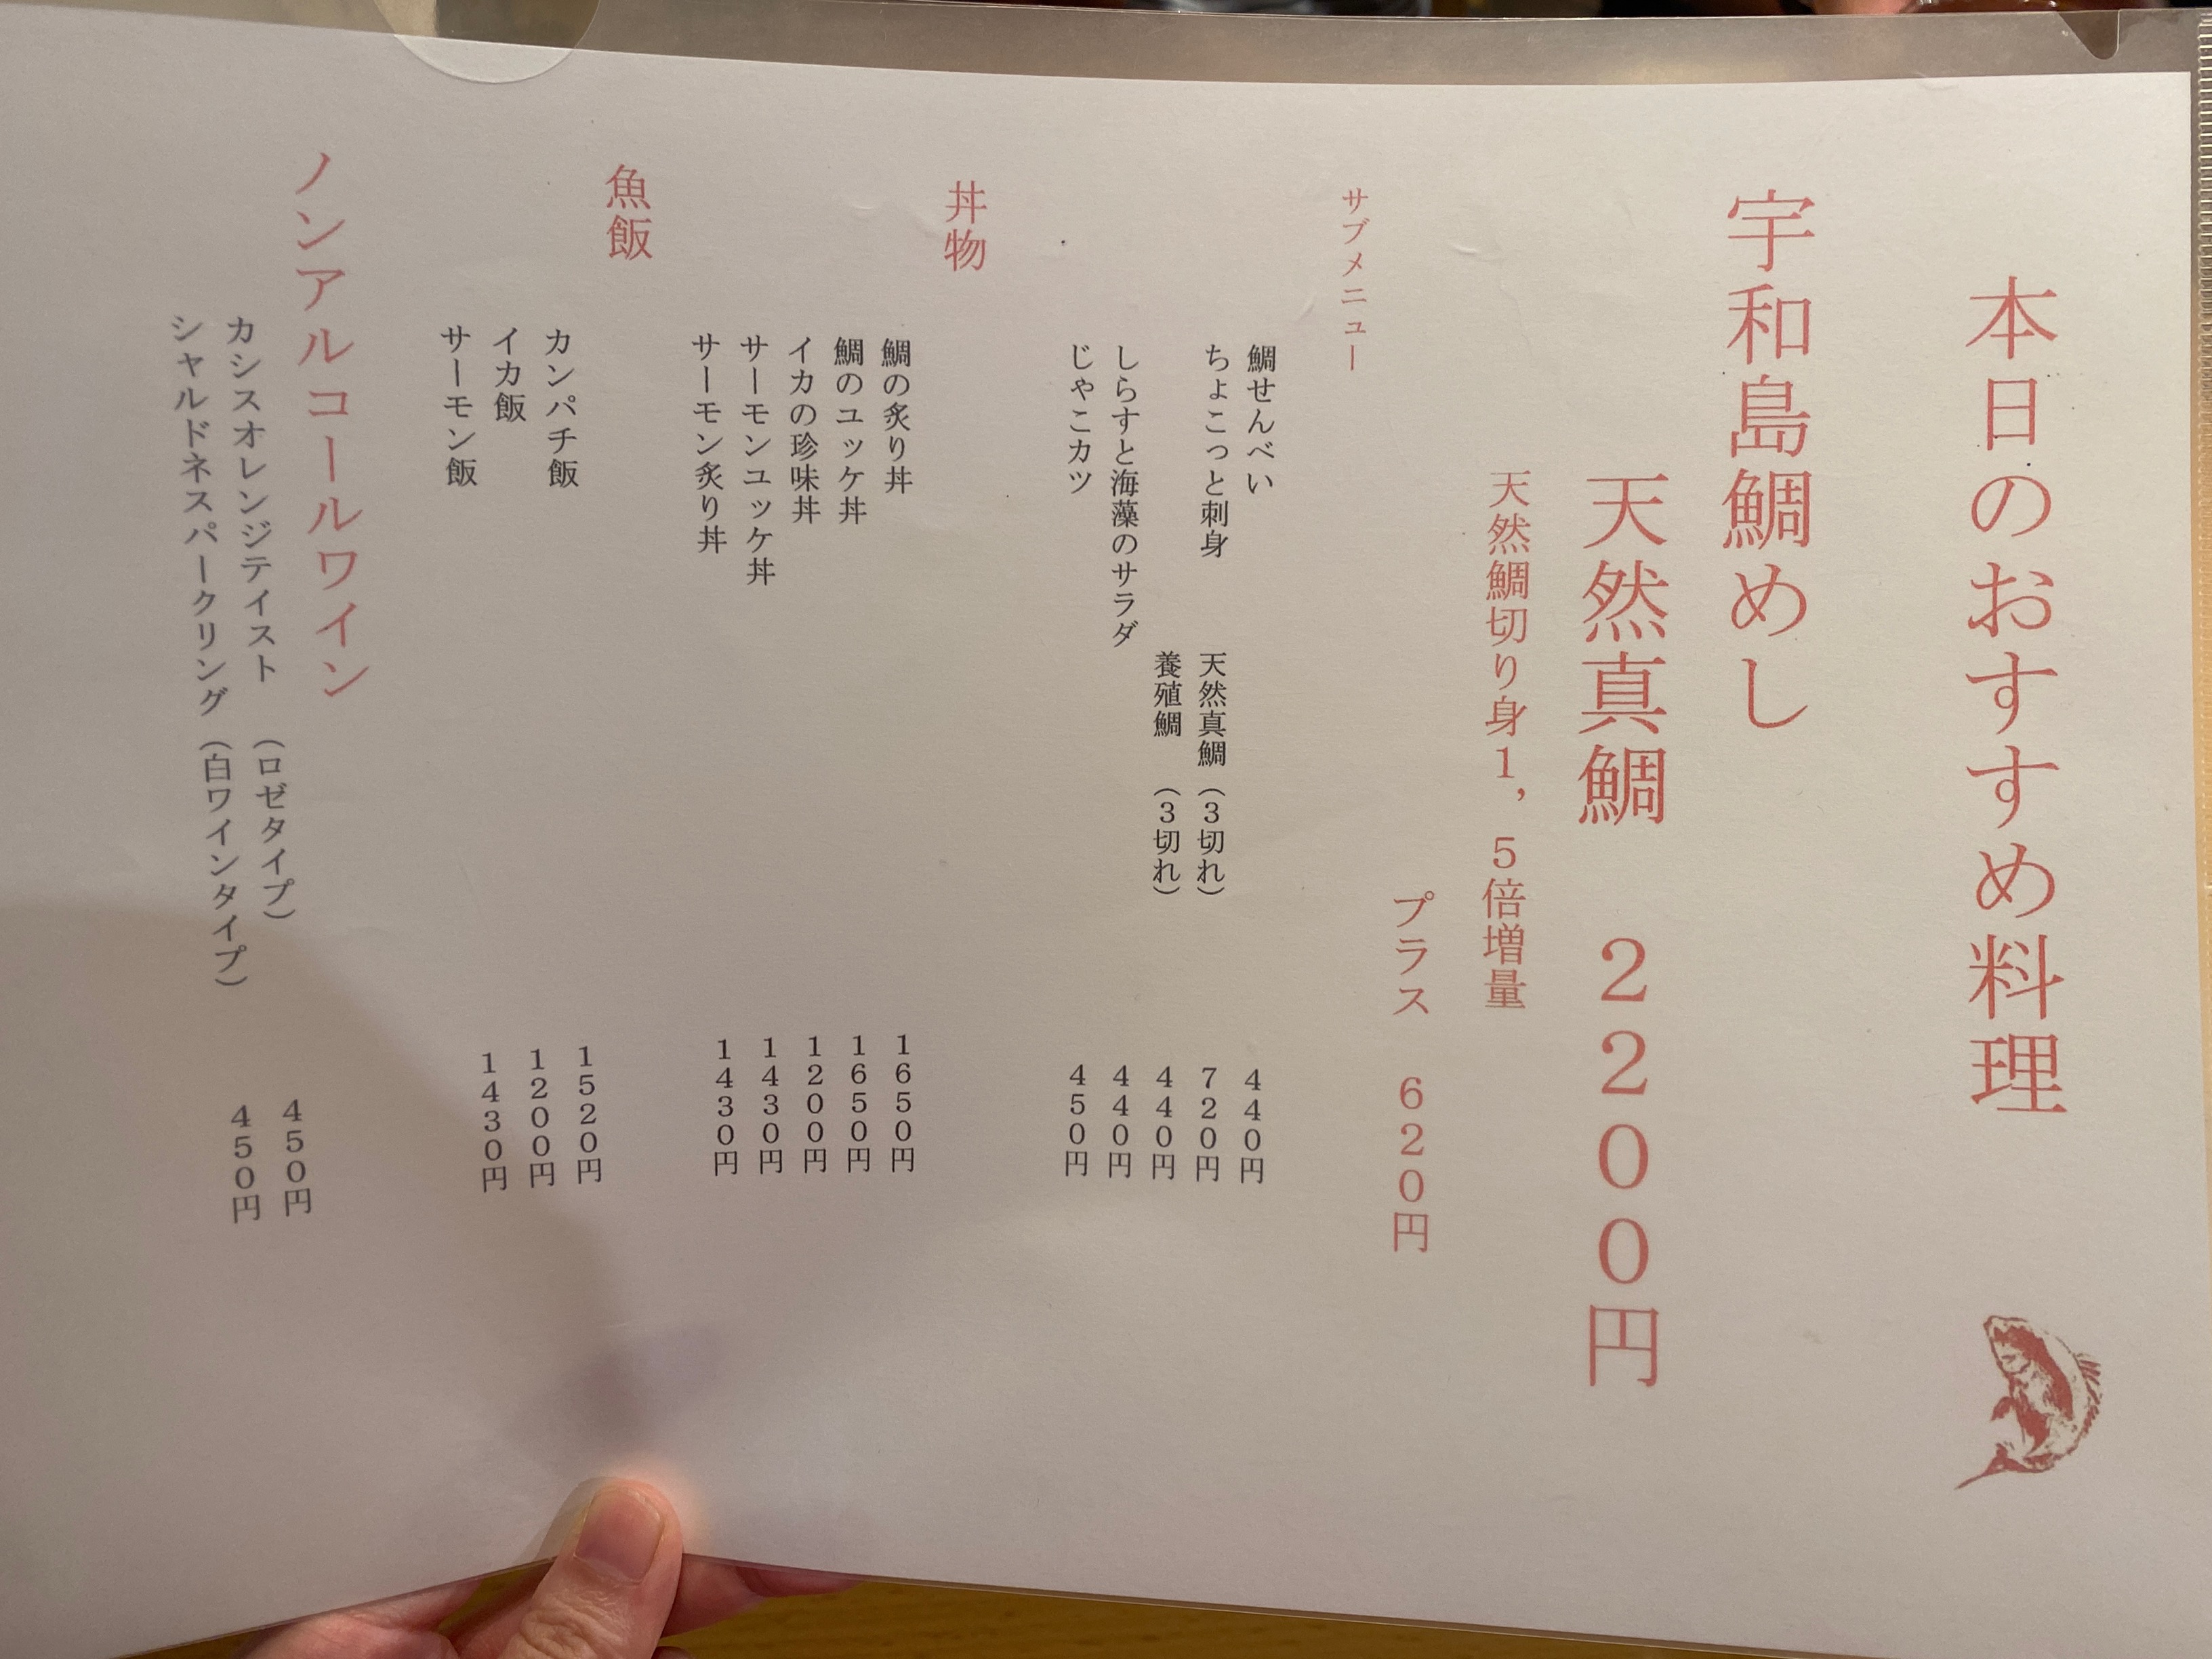 本日のおすすめ料理
宇和島鯛めし
天然真鯛　２２００円
天然鯛切り身１，５倍増量
プラス　６２０円
サブメニュー
鯛せんべい　４４０円
ちょこっと刺身　天然真鯛（３切れ）　７２０円
養殖鯛　（３切れ）　４４０円
しらすと海藻のサラダ　４４０円
じゃこカツ　４５０円
丼物
鯛の炙り丼　１６５０円
鯛のユッケ丼　１６５０円
イカの珍味丼　１２００円
サーモンユッケ丼　１４３０円
サーモン炙り丼　１４３０円
魚飯
カンパチ飯　１５２０円
イカ飯　１２００円
サーモン飯　１４３０円
ノンアルコールワイン
カシスオレンジテイスト　（ロゼタイプ）　４５０円
シャルドネスパークリング　（白ワインタイプ）　４５０円